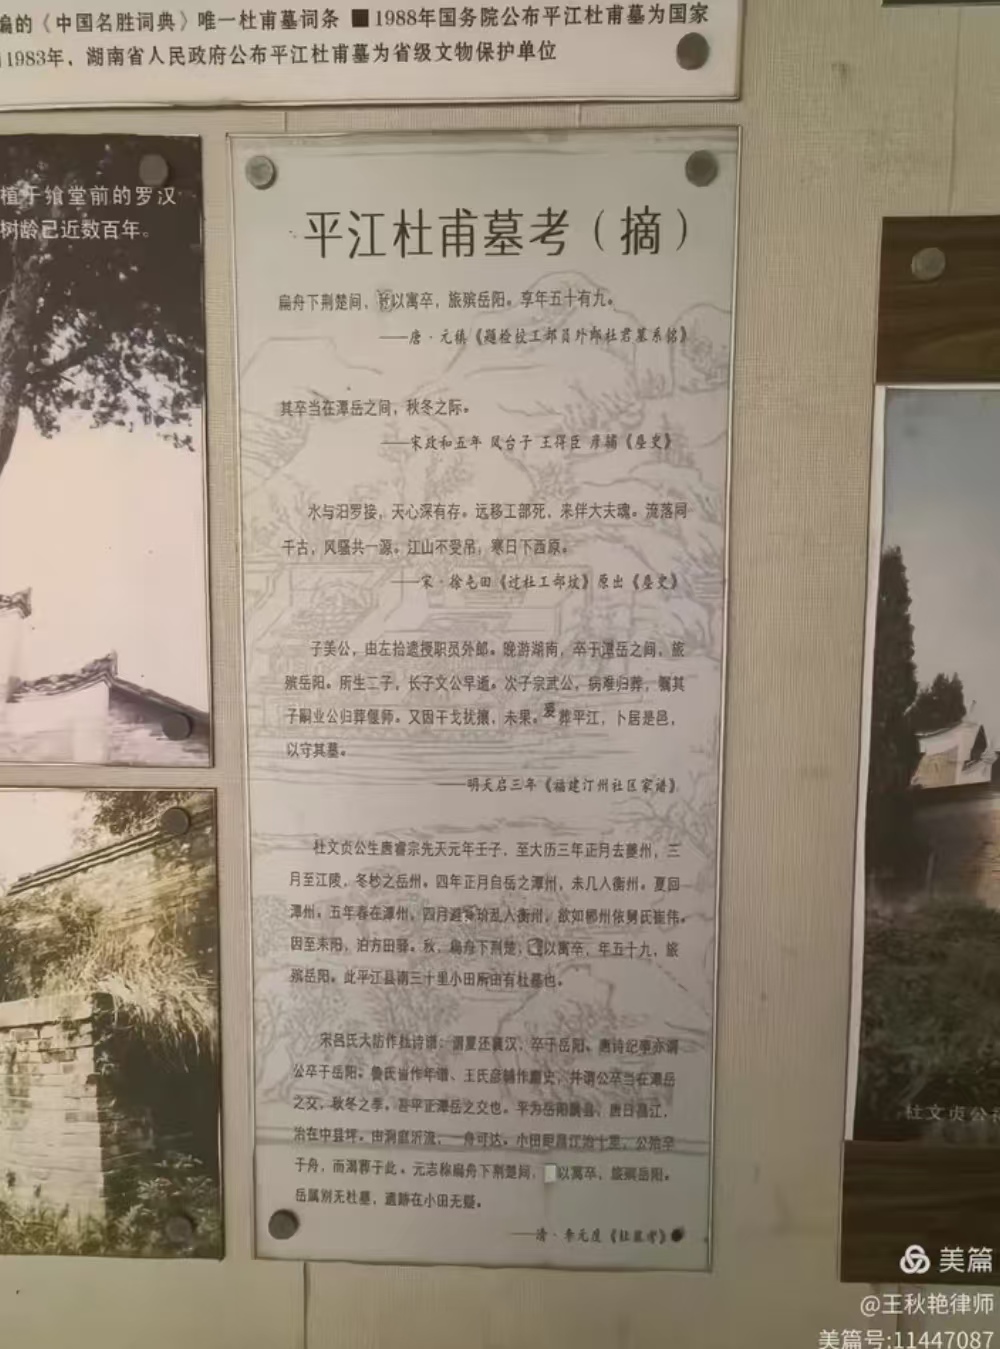 编的《中国名胜词典》唯一杜甫墓词条 ■1988年国务院公布平江杜甫墓为国家
1983年，湖南省人民政府公布平江杜甫墓为省级文物保护单位
植于飨堂前的罗汉
树龄已近数百年。
平江杜甫墓考（摘）
扁舟下荆楚间，以寓卒，旅殡岳阳。享年五十有九。
——唐·元稹《题检校工部员外郎杜君墓系铭》
其卒当在潭岳之间，秋冬之际。
——宋政和五年 凤台子 王得臣 彦辅《麈史》
水与汨罗接，天心深有存。远移工部死，来伴大夫魂。流落同
千古，风骚共一源。江山不受吊，寒日下西原。
——宋·徐屯田《过杜工部坟》原出《麈史》
子美公，由左拾遗授职员外郎。晚游湖南，卒于潭岳之间，旅
殡岳阳。所生二子，长子文公早逝。次子宗武公，病难归葬，嘱其
子嗣业公归葬偃师。又因干戈扰攘，未果。爰葬平江，卜居是邑，
以守其墓。
——明天启三年《福建汀州社区家谱》
杜文贞公生唐睿宗先天元年壬子，至大历三年正月去夔州，三
月至江陵，冬杪之岳州。四年正月自岳之潭州，未几入衡州，夏回
潭州。五年春在潭州，四月避臧玠乱入衡州，欲如郴州依舅氏崔伟。
因至耒阳，泊方田驿。秋，扁舟下荆楚，以寓卒，年五十九，旅
殡岳阳。此平江县南三十里小田所由有杜墓也。
宋吕氏大防作杜诗谱：谓夏还襄汉，卒于岳阳。唐诗纪事亦谓
公卒于岳阳。鲁氏訔作年谱、王氏彦辅作麈史，并谓公卒当在潭岳
之交，秋冬之季。吾平正潭岳之交也。平为岳阳属县，唐曰昌江，
治在中县坪。由洞庭沂流，一舟可达。小田距昌江治十里，公殆卒
于舟，而渴葬于此。元志称扁舟下荆楚间，以寓卒，旅殡岳阳。
岳属别无杜墓，遗跡在小田无疑。
——清·李元度《杜墓考》
杜文贞公
美篇
@王秋艳律师
美篇号:11447087